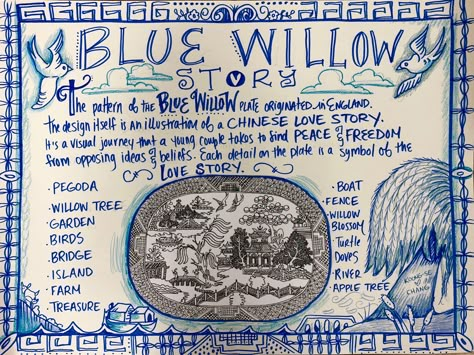 BLUE WILLOW
STORY
The pattern of the BLUE WILLOW PLATE ORIGINATED in ENGLAND.
The design itself is an illustration of a CHINESE LOVE STORY.
It's a visual journey that a young couple takes to find PEACE & FREEDOM
from opposing ideas & beliefs. Each detail on the plate is a symbol of the
LOVE STORY.
· PEGODA
· WILLOW TREE
· GARDEN
· BIRDS
· BRIDGE
· ISLAND
· FARM
· TREASURE
· BOAT
· FENCE
· WILLOW
BLOSSOM
· Turtle
DOVES
· RIVER
· APPLE TREE
KOONG-SE
&
CHANG